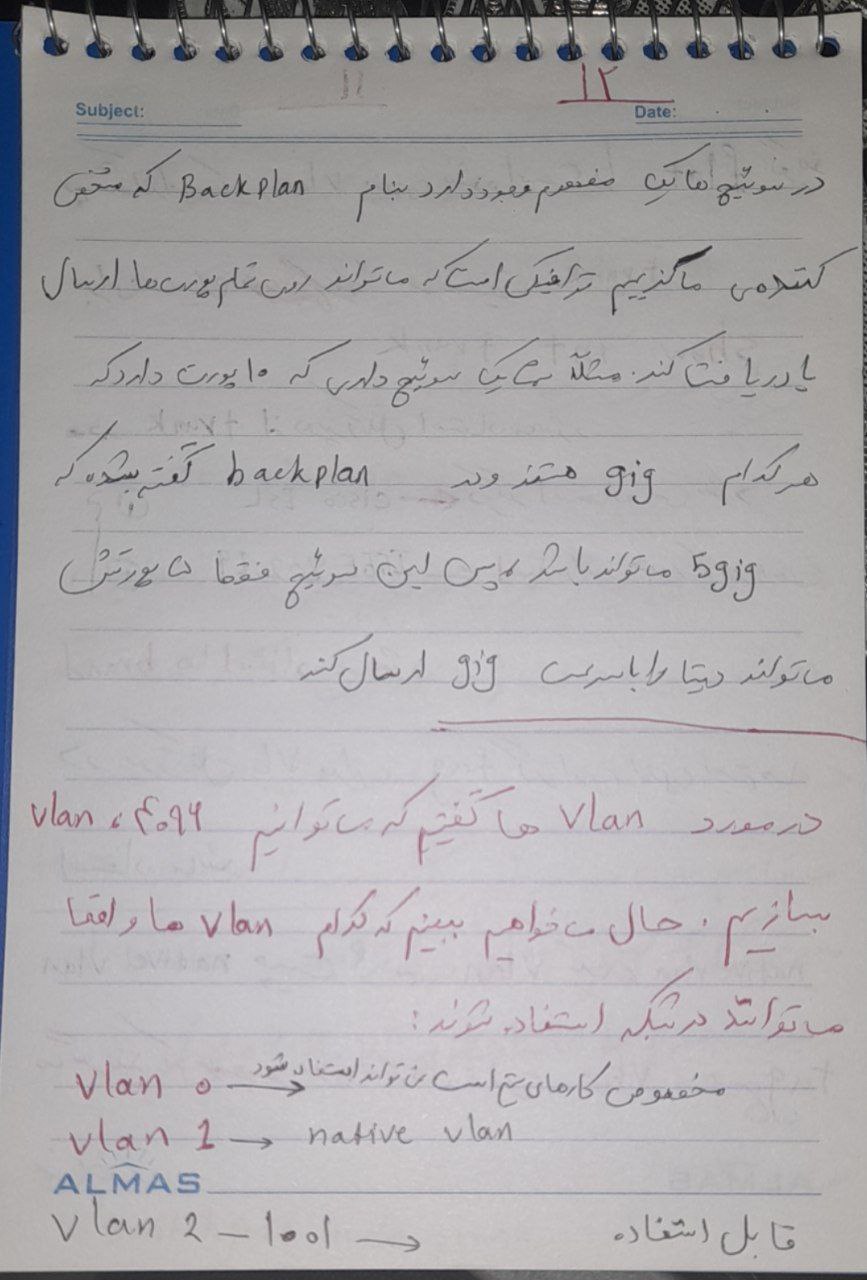 ۱۲
Subject:
Date:
در سوئیچ ها یک مفهوم وجود دارد بنام Backplan که مشخص
کننده ی ماگزیمم ترافیکی است که می تواند روی تمام پورت ها ارسال
یا دریافت کند. مثلاً یک سوئیچ داری که ۱۰ پورت دارد که
هر کدام gig هستند ولی backplan گفته شده که
5gig می تواند باشد، پس این سوئیچ فقط ۵ پورتش
می تواند دیتا را با سرعت gig ارسال کند
در مورد Vlan ها گفتیم که می توانیم ۴۰۹۶ ، vlan
بسازیم. حال می خواهیم ببینیم که کدام vlan ها واقعا
می توانند در شبکه استفاده شوند:
Vlan 0 → مخصوص کارهای است نمی تواند استفاده شود
vlan 1 → native vlan
ALMAS
Vlan 2 - 1001 → قابل استفاده